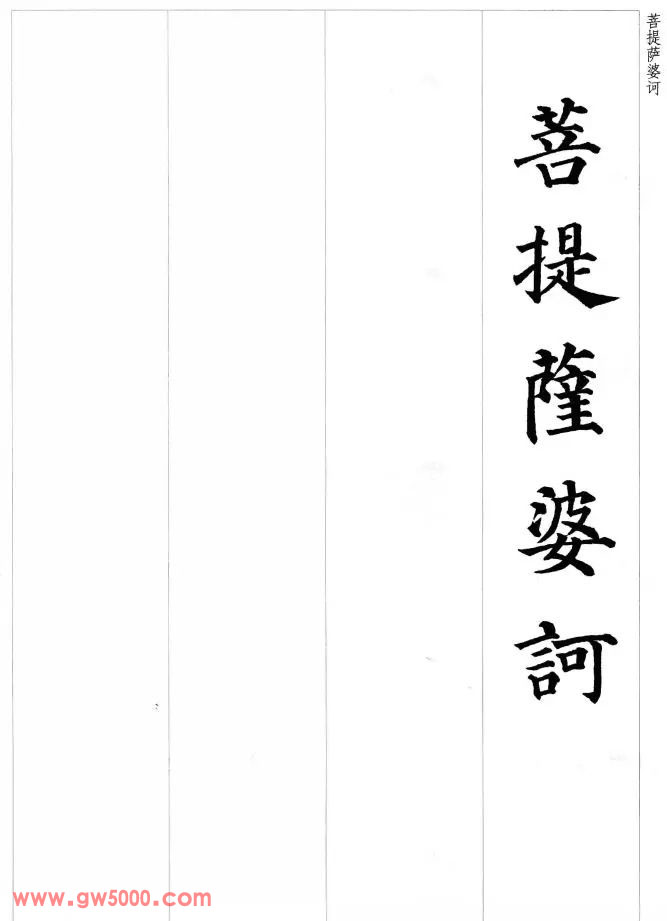 菩提萨婆诃
菩提薩婆訶
www.gw5000.com